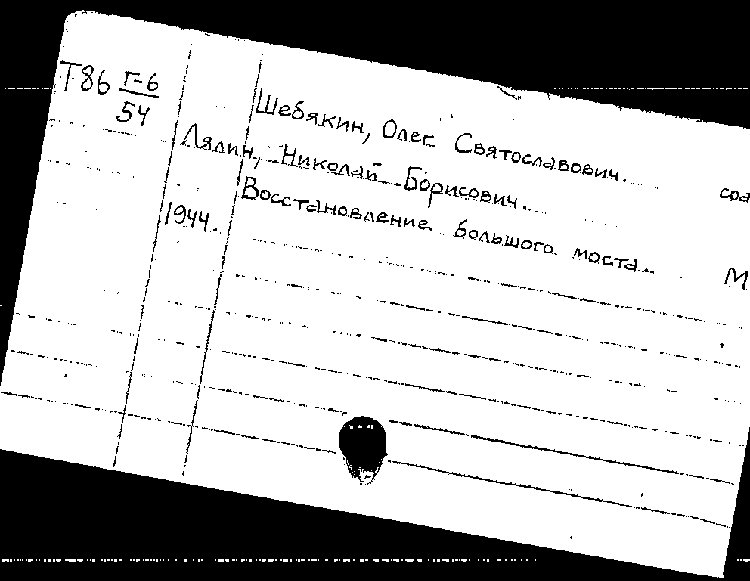 Т86 Г-6
54
Шебякин, Олег Святославович. сра
Лялин, Николай Борисович.
Восстановление большого моста. М
1944.